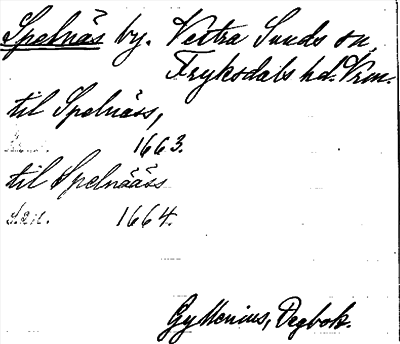 Spelnäs by. Vestra Sunds sn,
Fryksdals hd. Vrm.
til Spelnäss,
1663.
til Spelnäääss
1664.
Gyllenius, Degbok.